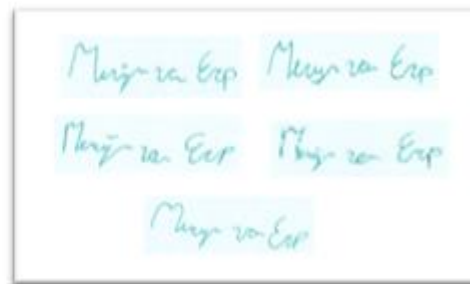 Merijn van Erp Merijn van Erp
Merijn van Erp Merijn van Erp
Merijn van Erp